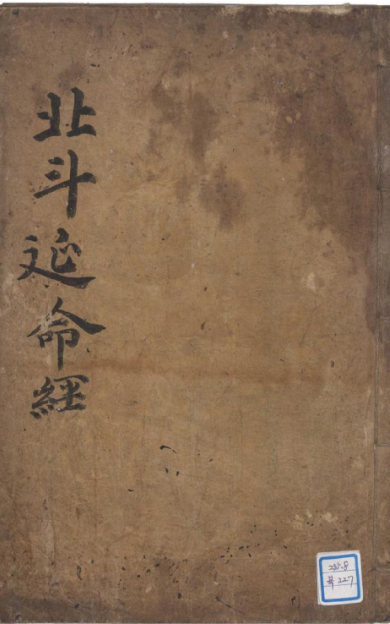 北斗延命經